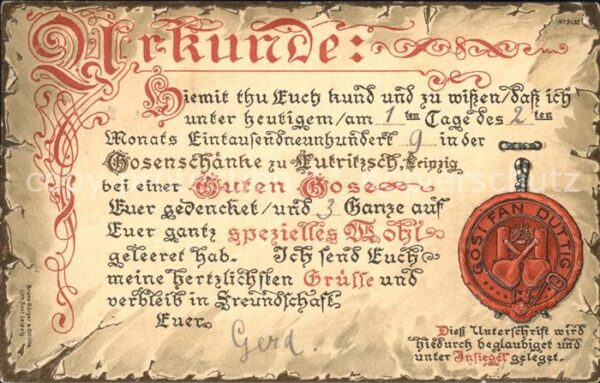 No 3432
Urkunde:
Hiemit thu Euch kund und zu wißen/daß ich
unter heutigem/am 1 ten Tage des 2 ten
Monats Eintausendneunhundert 9 in der
Gosenschänke zu Eutritzsch, Leipzig
bei einer Guten Gose
Euer gedencket/und 3 Ganze auf
Euer gantz spezielles Wohl
geleeret hab. Ich send Euch
meine hertzlichsten Grüsse und
verbleib in Freundschaft
Euer Gerd.
GOSI FAN DUTTIG
Dieß Unterschrift wird
hiedurch beglaubiget und
unter Insiegel geleget.